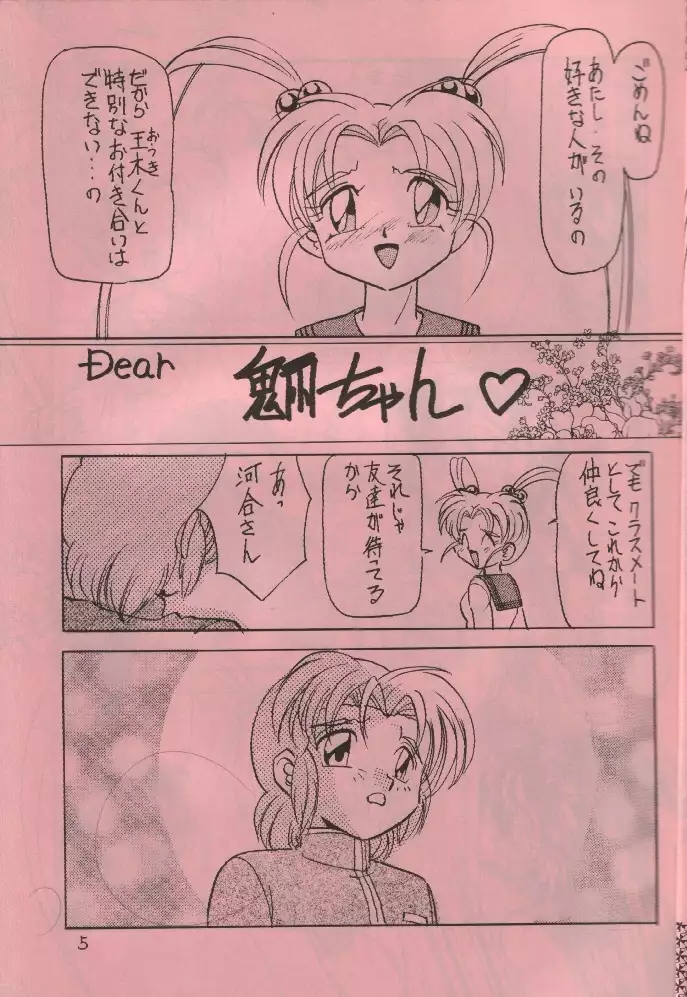 ごめんね
あたし・その
好きな人が いるの
だから 王木くんと
おつき
特別なお付き合いは
できない…の
Dear
ちゃん♡
でも クラスメート
として これから
仲良くしてね
それじゃ
友達が待ってる
から
あっ
河合さん
5